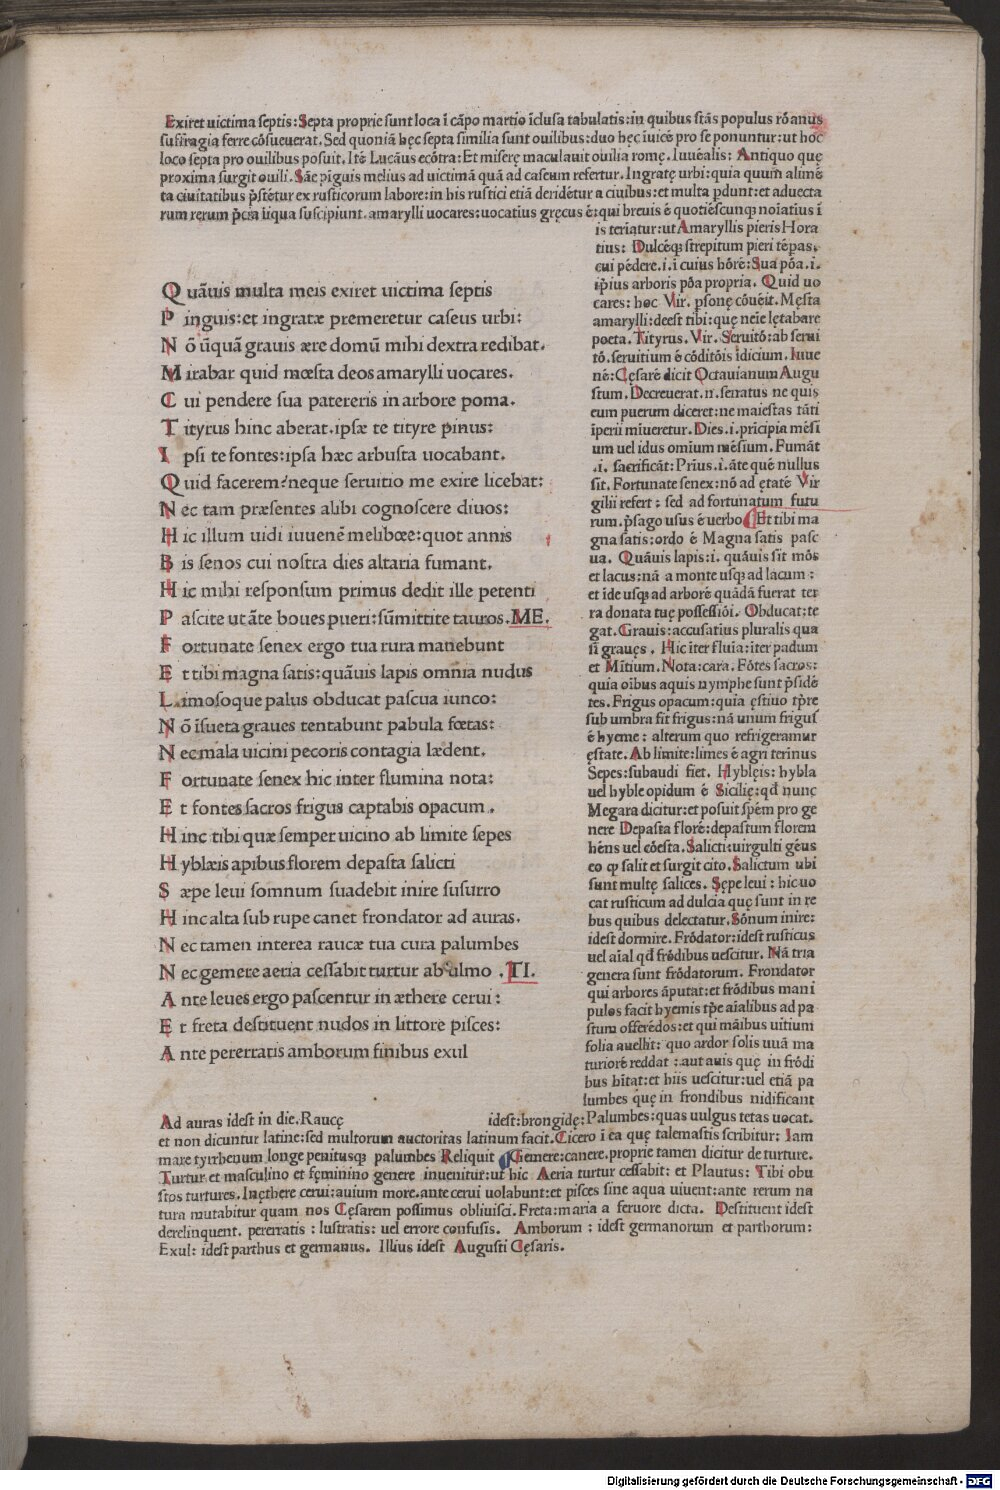 Exiret uictima septis: Septa proprie sunt loca ī cāpo martio īclusa tabulatis: in quibus stās populus rōanus
suffragia ferre cōsueuerat. Sed quoniā hęc septa similia sunt ouilibus: duo hęc īuicē pro se ponuntur: ut hoc
loco septa pro ouilibus posuit. Itē Lucāus ecōtra: Et miserę maculauit ouilia romę. Iuuēalis: Antiquo quę
proxima surgit ouili. Sāe pīguis melius ad uictimā quā ad caseum refertur. Ingratę urbi: quia quum alimē
ta ciuitatibus p̄stētur ex rusticorum labore: in his rustici etiā deridētur a ciuibus: et multa ꝑdunt: et aduecta
rum rerum p̄cia īiqua suscipiunt. amarylli uocares: uocatius gręcus ē: qui breuis ē quotiēscunqꝫ noīatius ī
is teriatur: ut Amaryllis pieris Hora
tius: Dulcēqꝫ strepitum pieri tēpas.
cui pēdere .i. i cuius hōre: Sua pōa .i.
ipius arboris pōa propria. Quid uo
cares: hoc Vir. ꝑsonę cōueit. Męsta
amarylli: deest tibi: quę neīe lętabare
poeta. Tityrus. Vir. Seruitō: ab serui
tō. seruitium ē cōditōis īdicium. Iuue
nē: Cęsarē dicit Octauianum Augu
stum. Decreuerat .n. serratus ne quis
eum puerum diceret: ne maiestas tāti
īperii mīueretur. Dies .i. prīcipia mēsi
um uel idus omīum mēsium. Fumāt
.i. sacrificāt: Prīus .i. āte quē nullus
sit. Fortunate senex: nō ad ętatē Vir
gilii refert: sed ad fortunatum futu
rum. p̄sago usus ē uerbo Et tibi ma
gna satis: ordo ē Magna satis pasc
ua. Quāuis lapis: i. quāuis sit mōs
et lacus: nā a monte usqꝫ ad lacum:
et ide usqꝫ ad arborē quādā fuerat ter
ra donata tuę possessiōi. Obducat: te
gat. Grauis: accusatius pluralis qua
si grauęs. Hic īter fluīa: īter padum
et Mītium. Nota: cara. Fōtes sacros:
quia oībus aquis nymphe sunt p̄sidē
tes. Frigus opacum: quia ęstiuo tp̄re
sub umbra fit frigus: nā unum frigus
ē hyeme: alterum quo refrigeramur
ęstate. Ab limite: limes ē agri terīnus
Sepes: subaudi fiet. Hyblęis: hybla
uel hyble opidum ē Sicilię: qd nunc
Megara dicitur: et posuit sp̄em pro ge
nere Depasta florē: depastum florem
hēns uel cōesta. Salicti: uirgulti gēus
eo ꝙ salit et surgit cito. Salictum ubi
sunt multę salices. Sępe leui: hic uo
cat rusticum ad dulcia quę sunt in re
bus quibus delectatur. Sōnum inire:
idest dormire. Frōdator: idest rusticus
uel aīal qd frōdibus uescitur. Nā tria
genera sunt frōdatorum. Frondator
qui arbores āputat: et frōdibus mani
pulos facit hyemis tp̄e aīalibus ad pa
stum offerēdos: et qui māibus uitium
folia auellit: quo ardor solis uuā ma
turiorē reddat: aut auis quę in frōdi
bus hītat: et hiis uescitur: uel etiā pa
lumbes quę in frondibus nidificant
Q uāuis multa meis exiret uictima septis
P inguis: et ingratæ premeretur caseus urbi:
N ō ūquā grauis ære domū mihi dextra redibat.
M irabar quid mœsta deos amarylli uocares.
C ui pendere sua patereris in arbore poma.
T ityrus hinc aberat. ipsæ te tityre pinus:
I psi te fontes: ipsa hæc arbusta uocabant.
Q uid facerem? neque seruitio me exire licebat:
N ec tam præsentes alibi cognoscere diuos:
H ic illum uidi iuuenē melibœe: quot annis
B is senos cui nostra dies altaria fumant.
H ic mihi responsum primus dedit ille petenti
P ascite ut āte boues pueri: sūmittite tauros. ME.
F ortunate senex ergo tua rura manebunt
E t tibi magna satis: quāuis lapis omnia nudus
L imosoque palus obducat pascua iunco:
N ō īsueta graues tentabunt pabula fœtas:
N ec mala uicini pecoris contagia lædent.
F ortunate senex hic inter flumina nota:
E t fontes sacros frigus captabis opacum.
H inc tibi quæ semper uicino ab limite sepes
H yblæis apibus florem depasta salicti
S æpe leui somnum suadebit inire susurro
H inc alta sub rupe canet frondator ad auras.
N ec tamen interea raucæ tua cura palumbes
N ec gemere aeria cessabit turtur ab ulmo. TI.
A nte leues ergo pascentur in æthere cerui:
E t freta destituent nudos in littore pisces:
A nte pererratis amborum finibus exul
Ad auras idest in die. Raucę idest: brongidę: Palumbes: quas uulgus tetas uocat.
et non dicuntur latine: sed multorum auctoritas latinum facit. Cicero ī ea quę talemastis scribitur: Iam
mare tyrrhenum longe penitusqꝫ palumbes Reliquit Gemere: canere. proprie tamen dicitur de turture.
Turtur et masculino et fęminino genere inuenitur: ut hic Aeria turtur cessabit: et Plautus: Tibi obu
stos turtures. In ęthere cerui: auium more. ante cerui uolabunt: et pisces sine aqua uiuent: ante rerum na
tura mutabitur quam nos Cęsarem possimus obliuisci. Freta: maria a feruore dicta. Destituent idest
derelinquent. pererratis: lustratis: uel errore confusis. Amborum: idest germanorum et parthorum:
Exul: idest parthus et germanus. Illius idest Augusti Cęsaris.
Digitalisierung gefördert durch die Deutsche Forschungsgemeinschaft - DFG